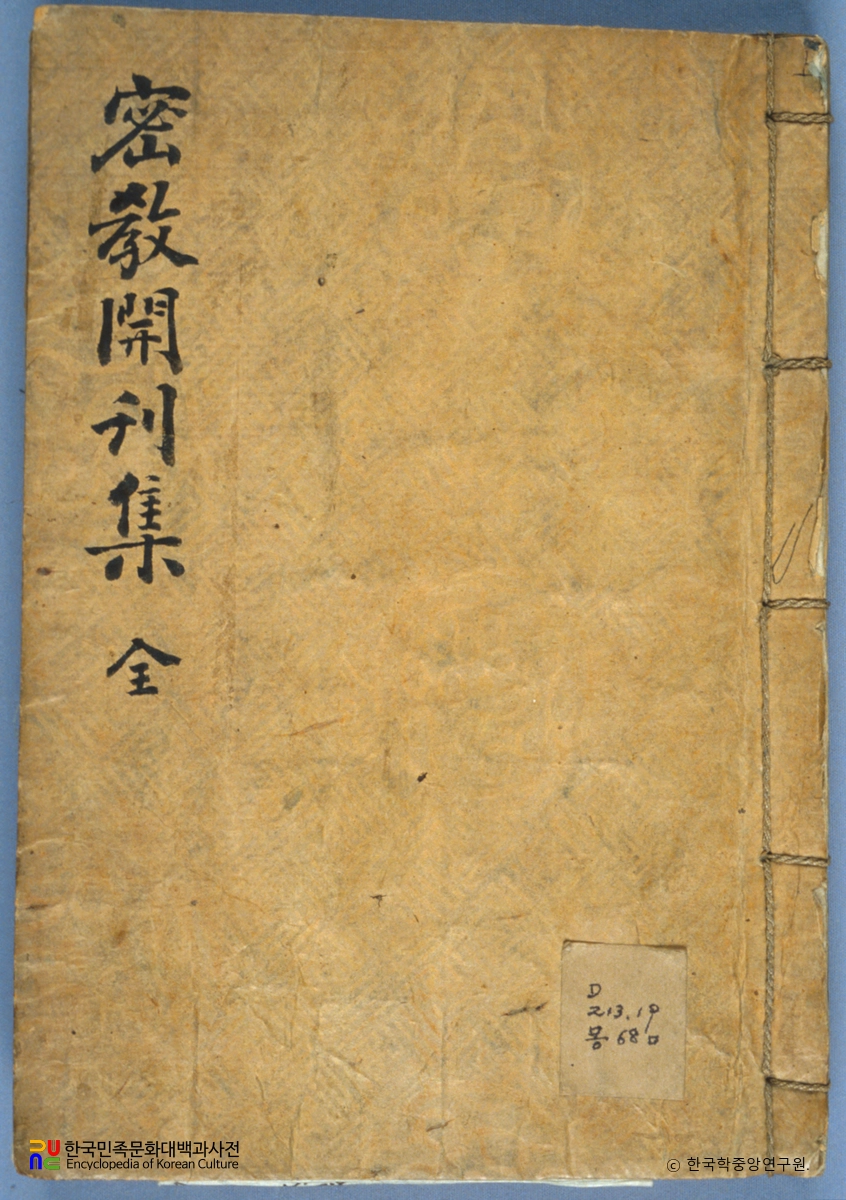 密教開刊集 全
D
213.19
몽 68ㅁ
한국민족문화대백과사전
Encyclopedia of Korean Culture
© 한국학중앙연구원